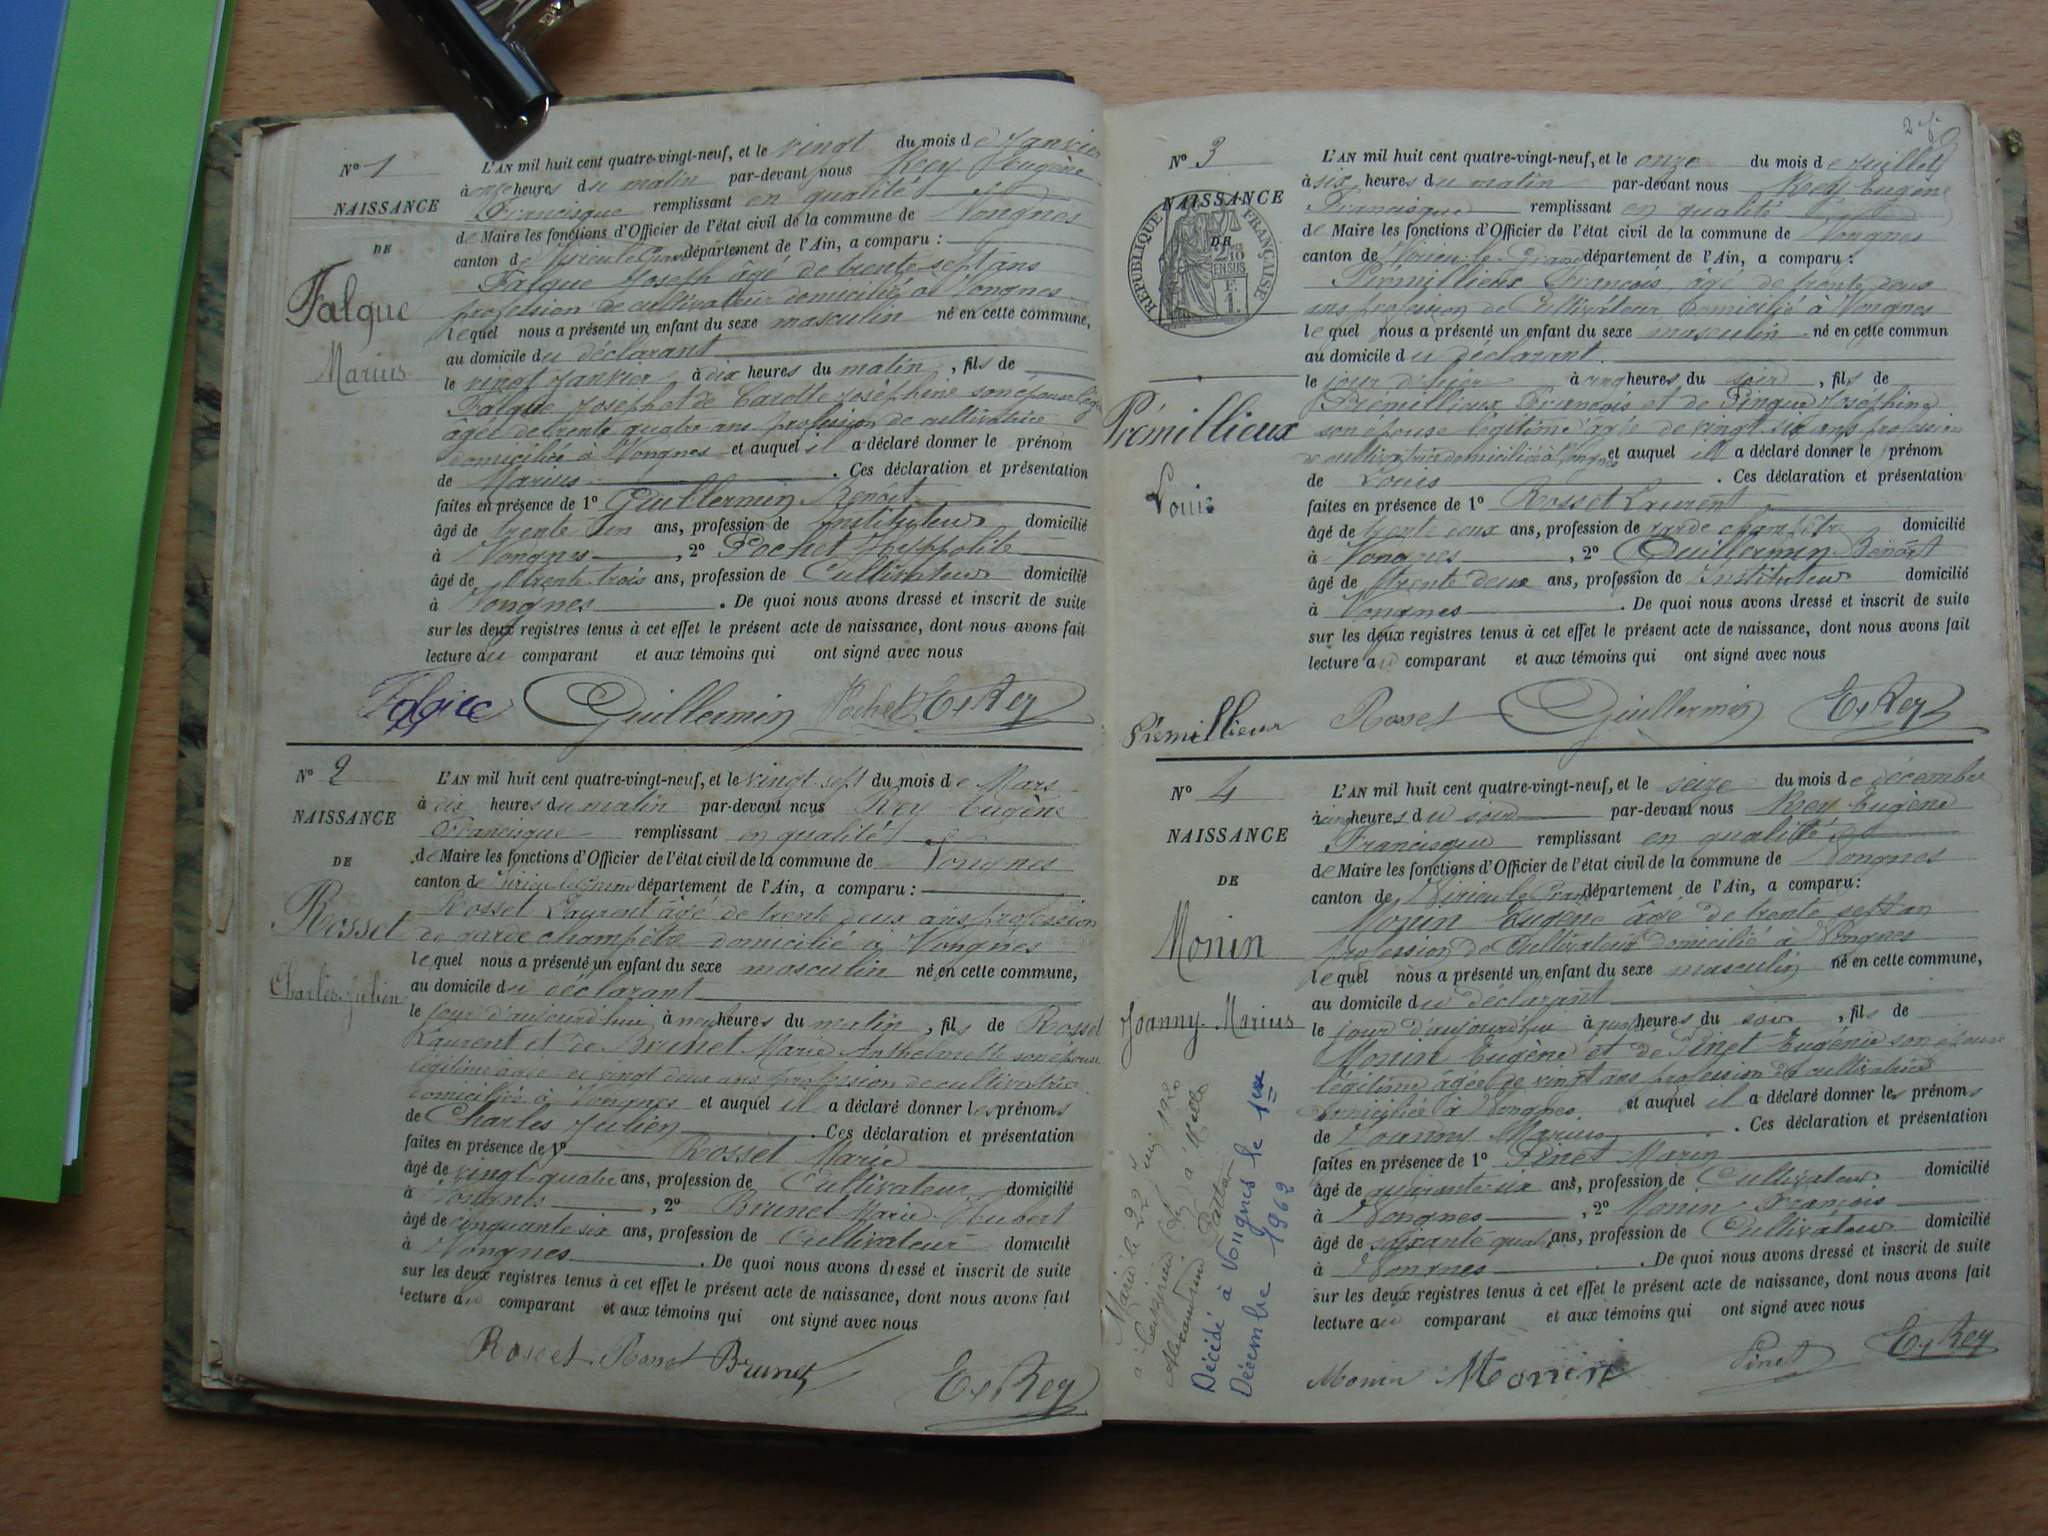 N° 1
NAISSANCE
DE
Falque
Marius
L'AN mil huit cent quatre-vingt-neuf, et le vingt du mois de Janvier
à onze heures du matin par-devant nous Rey Eugène
Francisque remplissant en qualité
de Maire les fonctions d'Officier de l'état civil de la commune de Vongnes
canton de Virieu le Grand département de l'Ain, a comparu :
Falque Joseph âgé de trente-sept ans
profession de cultivateur domicilié à Vongnes
lequel nous a présenté un enfant du sexe masculin né en cette commune,
au domicile du déclarant
le vingt Janvier à dix heures du matin, fils de
Falque Joseph et de Carotte Joséphine son épouse
âgée de trente quatre ans profession de cultivatrice
domiciliée à Vongnes et auquel il a déclaré donner le prénom
de Marius. Ces déclaration et présentation
faites en présence de 1° Guillermin Benoit
âgé de trente un ans, profession de Instituteur domicilié
à Vongnes, 2° Pochet Hyppolite
âgé de trente-trois ans, profession de Cultivateur domicilié
à Vongnes. De quoi nous avons dressé et inscrit de suite
sur les deux registres tenus à cet effet le présent acte de naissance, dont nous avons fait
lecture au comparant et aux témoins qui ont signé avec nous
Falque Guillermin Pochet E. Rey
N° 2
NAISSANCE
DE
Rosset
Charles-Julien
L'AN mil huit cent quatre-vingt-neuf, et le vingt-sept du mois de Mars
à dix heures du matin par-devant nous Rey Eugène
Francisque remplissant en qualité
de Maire les fonctions d'Officier de l'état civil de la commune de Vongnes
canton de Virieu le Grand département de l'Ain, a comparu :
Rosset Laurent âgé de trente deux ans profession
de garde champêtre domicilié à Vongnes
lequel nous a présenté un enfant du sexe masculin né en cette commune,
au domicile du déclarant
le jour d'aujourd'hui à neuf heures du matin, fils de Rosset
Laurent et de Brunet Marie Anthelmette son épouse
légitime âgée de vingt deux ans profession de cultivatrice
domiciliée à Vongnes et auquel il a déclaré donner les prénoms
de Charles Julien. Ces déclaration et présentation
faites en présence de 1° Rosset Marie
âgé de vingt quatre ans, profession de Cultivateur domicilié
à Vongnes, 2° Brunet Marie Hubert
âgé de cinquante six ans, profession de Cultivateur domicilié
à Vongnes. De quoi nous avons dressé et inscrit de suite
sur les deux registres tenus à cet effet le présent acte de naissance, dont nous avons fait
lecture au comparant et aux témoins qui ont signé avec nous
Rosset Rosset Brunet
E. Rey
2
N° 3
NAISSANCE
DE
RÉPUBLIQUE FRANÇAISE
2/10 EN SUS
F. 1.
Prémillieux
Louis
L'AN mil huit cent quatre-vingt-neuf, et le onze du mois de Juillet
à six heures du matin par-devant nous Rey Eugène
Francisque remplissant en qualité
de Maire les fonctions d'Officier de l'état civil de la commune de Vongnes
canton de Virieu le Grand département de l'Ain, a comparu :
Prémillieux François, âgé de trente deux
ans profession de Cultivateur domicilié à Vongnes
lequel nous a présenté un enfant du sexe masculin né en cette commun
au domicile du déclarant.
le jour d'hier à cinq heures du soir, fils de
Prémillieux François et de Pingué Joséphine
son épouse légitime âgée de vingt six ans profession
de cultivatrice domiciliée à Vongnes et auquel il a déclaré donner le prénom
de Louis. Ces déclaration et présentation
faites en présence de 1° Rosset Laurent
âgé de trente deux ans, profession de garde champêtre domicilié
à Vongnes, 2° Guillermin Benoit
âgé de trente deux ans, profession de Instituteur domicilié
à Vongnes. De quoi nous avons dressé et inscrit de suite
sur les deux registres tenus à cet effet le présent acte de naissance, dont nous avons fait
lecture au comparant et aux témoins qui ont signé avec nous
Prémillieux Rosset Guillermin E. Rey
N° 4
NAISSANCE
DE
Monin
Joanny-Marius
L'AN mil huit cent quatre-vingt-neuf, et le seize du mois de décembre
à cinq heures du soir par-devant nous Rey Eugène
Francisque remplissant en qualité
de Maire les fonctions d'Officier de l'état civil de la commune de Vongnes
canton de Virieu le Grand département de l'Ain, a comparu :
Monin Eugène âgé de trente sept an
profession de Cultivateur domicilié à Vongnes
lequel nous a présenté un enfant du sexe masculin né en cette commune,
au domicile du déclarant
le jour d'aujourd'hui à quatre heures du soir, fils de
Monin Eugène et de Pinet Eugénie son épouse
légitime âgée de vingt ans profession de cultivatrice
domiciliée à Vongnes. et auquel il a déclaré donner les prénoms
de Joanny Marius. Ces déclaration et présentation
faites en présence de 1° Pinet Marin
âgé de ans, profession de Cultivateur domicilié
à Vongnes, 2° Monin François
âgé de soixante quatre ans, profession de Cultivateur domicilié
à Vongnes. De quoi nous avons dressé et inscrit de suite
sur les deux registres tenus à cet effet le présent acte de naissance, dont nous avons fait
lecture au comparant et aux témoins qui ont signé avec nous
Monin Monin Pinet E. Rey
Marié le 22 1920
à Ceyzérieu à Melle
Alexandrine
Décédé à Vongnes le 1er
Décembre 1962